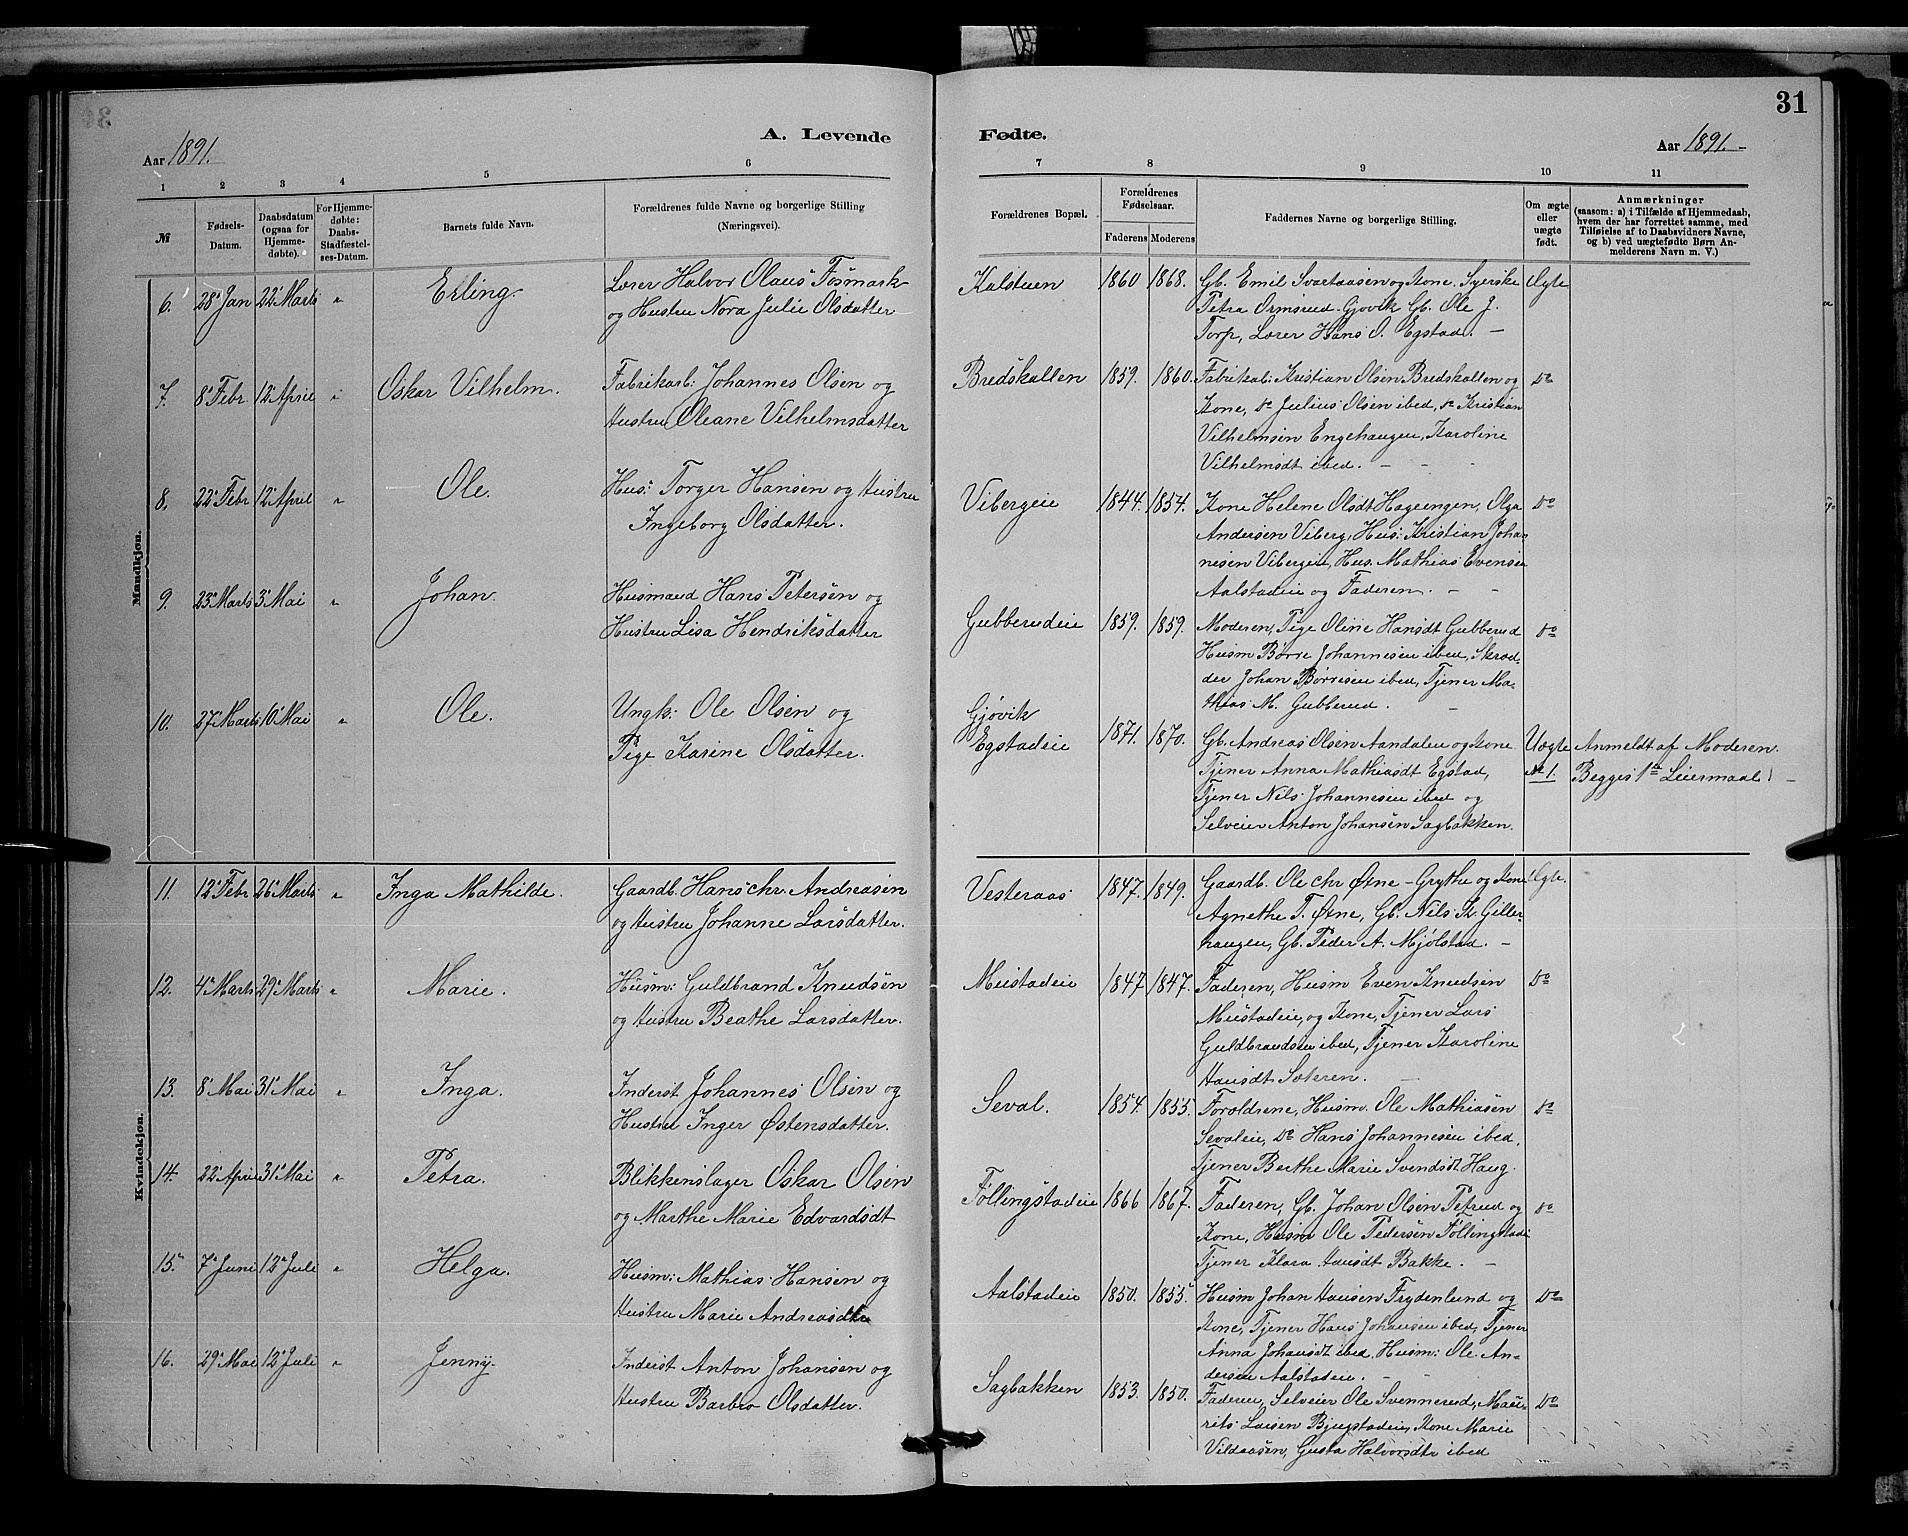 31
A. Levende Fødte.
Aar 1891.
Aar 1891.
1 2 3 4 5 6 7 8 9 10 11
№
Fødsels-
Datum.
Daabsdatum
(ogsaa for
Hjemme-
døbte).
For Hjemme-
døbte:
Daabs-
Stadfæstel-
ses-Datum.
Barnets fulde Navn.
Forældrenes fulde Navne og borgerlige Stilling
(Næringsvei).
Forældrenes Bopæl.
Forældrenes
Fødselsaar.
Faderens Moderens
Faddernes Navne og borgerlige Stilling.
Om ægte
eller
uægte
født.
Anmærkninger
(saasom: a) i Tilfælde af Hjemmedaab,
hvem der har forrettet samme, med
Tilføielse af to Daabsvidners Navne,
og b) ved uægtefødte Børn An-
melderens Navn m. V.)
Mandkjøn.
6. 28 Jan 22 Marts " Erling.
Lærer Halvor Olaus Fosmark
og Hustru Nora Julie Olsdatter
Kalstuen 1860 1868.
Gb. Emil Svartaasen og Kone. Syerske
Petra Ormsrud Gjøvik Gb. Ole J.
Torp, Lærer Hans O. Egstad. –
Ægte
7. 8 Febr 12 April " Oskar Vilhelm.
Fabrikarb: Johannes Olsen og
Hustru Oleane Vilhelmsdatter
Bredskallen 1859. 1860.
Fabrikab: Kristian Olsen Bredskallen og
Kone, Do Julius Olsen ibed, Do Kristian
Vilhelmsen Engehaugen, Karoline
Vilhelmsdt ibed. – –
Do
8. 22 Febr 12 April " Ole.
Hus: Torger Hansen og Hustru
Ingeborg Olsdatter.
Vibergeie 1844. 1854.
Kone Helene Olsdt Hageengen, Olga
Andersen Viberg, Hus: Kristian Johan
nesen Vibergeie, Hus. Mathias Evensen
Aalstadeie og Faderen. – –
Do
9. 23 Marts 3 Mai " Johan.
Husmand Hans Petersen og
Hustru Lisa Hendriksdatter
Gubberudeie 1859. 1859.
Moderen, Pige Oline Hansdt Gubberud
Husm Børre Johannesen ibed, Skræd-
der Johan Børresen ibed, Tjener Ma-
thias M. Gubberud. –
Do
10. 27 Marts 10 Mai " Ole.
Ungk: Ole Olsen og
Pige Karine Olsdatter.
Gjøvik
Egstadeie 1871. 1870.
Gb. Andreas Olsen Aandalen og Kone
Tjener Anna Mathiasdt Egstad,
Tjener Nils Johannesen ibed og
Selveier Anton Johansen Sagbakken.
Uægte
№ 1.
Anmeldt af Moderen.
Begges 1ste Leiermaal. –
Kvindekjøn.
11. 12 Febr 26 Marts " Inga Mathilde.
Gaardb. Hans Chr. Andreasen
og Hustru Johanne Larsdatter.
Vesteraas 1847. 1849.
Gaardb. Ole Chr Øtne – Grythe og Kone
Agnethe T. Øtne, Gb. Nils K. Giller-
haugen, Gb. Peder A. Mjølstad. –
Ægte.
12. 4 Marts 29 Marts " Marie.
Husm: Guldbrand Knudsen
og Hustru Beathe Larsdatter.
Mustadeie 1847 1847.
Faderen, Husm Even Knudsen
Mustadeie, og Kone, Tjener Lars
Guldbrandsen ibed, Tjener Karoline
Hansdt Sæteren. –
Do
13. 8 Mai 31 Mai " Inga.
Inderst Johannes Olsen og
Hustru Inger Østensdatter.
Seval. 1854. 1855.
Forældrene, Husm. Ole Mathiasen
Sevaleie, Do Hans Johannesen ibed,
Tjener Berthe Marie Svendsdt Haug.
Do
14. 22 April 31 Mai " Petra.
Blikkenslager Oskar Olsen
og Marthe Marie Edvardsdt
Føllingstadeie 1866 1867.
Faderen, Gb. Johan Olsen Petrud og
Kone, Husm Ole Pedersen Føllingstade
Tjener Klara Hansdt Bakke. –
Do
15. 7 Juni 12 Juli " Helga.
Husm: Mathias Hansen og
Hustru Marie Andreasdtr
Aalstadeie 1850. 1855.
Husm Johan Hansen Frydenlund og
Kone, Tjener Hans Johansen ibed, Tjener
Anna Johansdt ibed, Husm: Ole An-
dersen Aalstadeie. – –
Do
16. 29 Mai 12 Juli " Jenny.
Inderst Anton Johansen og
Hustru Barbro Olsdatter.
Sagbakken 1853. 1850.
Faderen, Selveier Ole Svennerud, Mau-
rits Larsen Bjugstadeie, Kone Marie
Vildaasen, Gusta Halvorsdtr ibed
Do